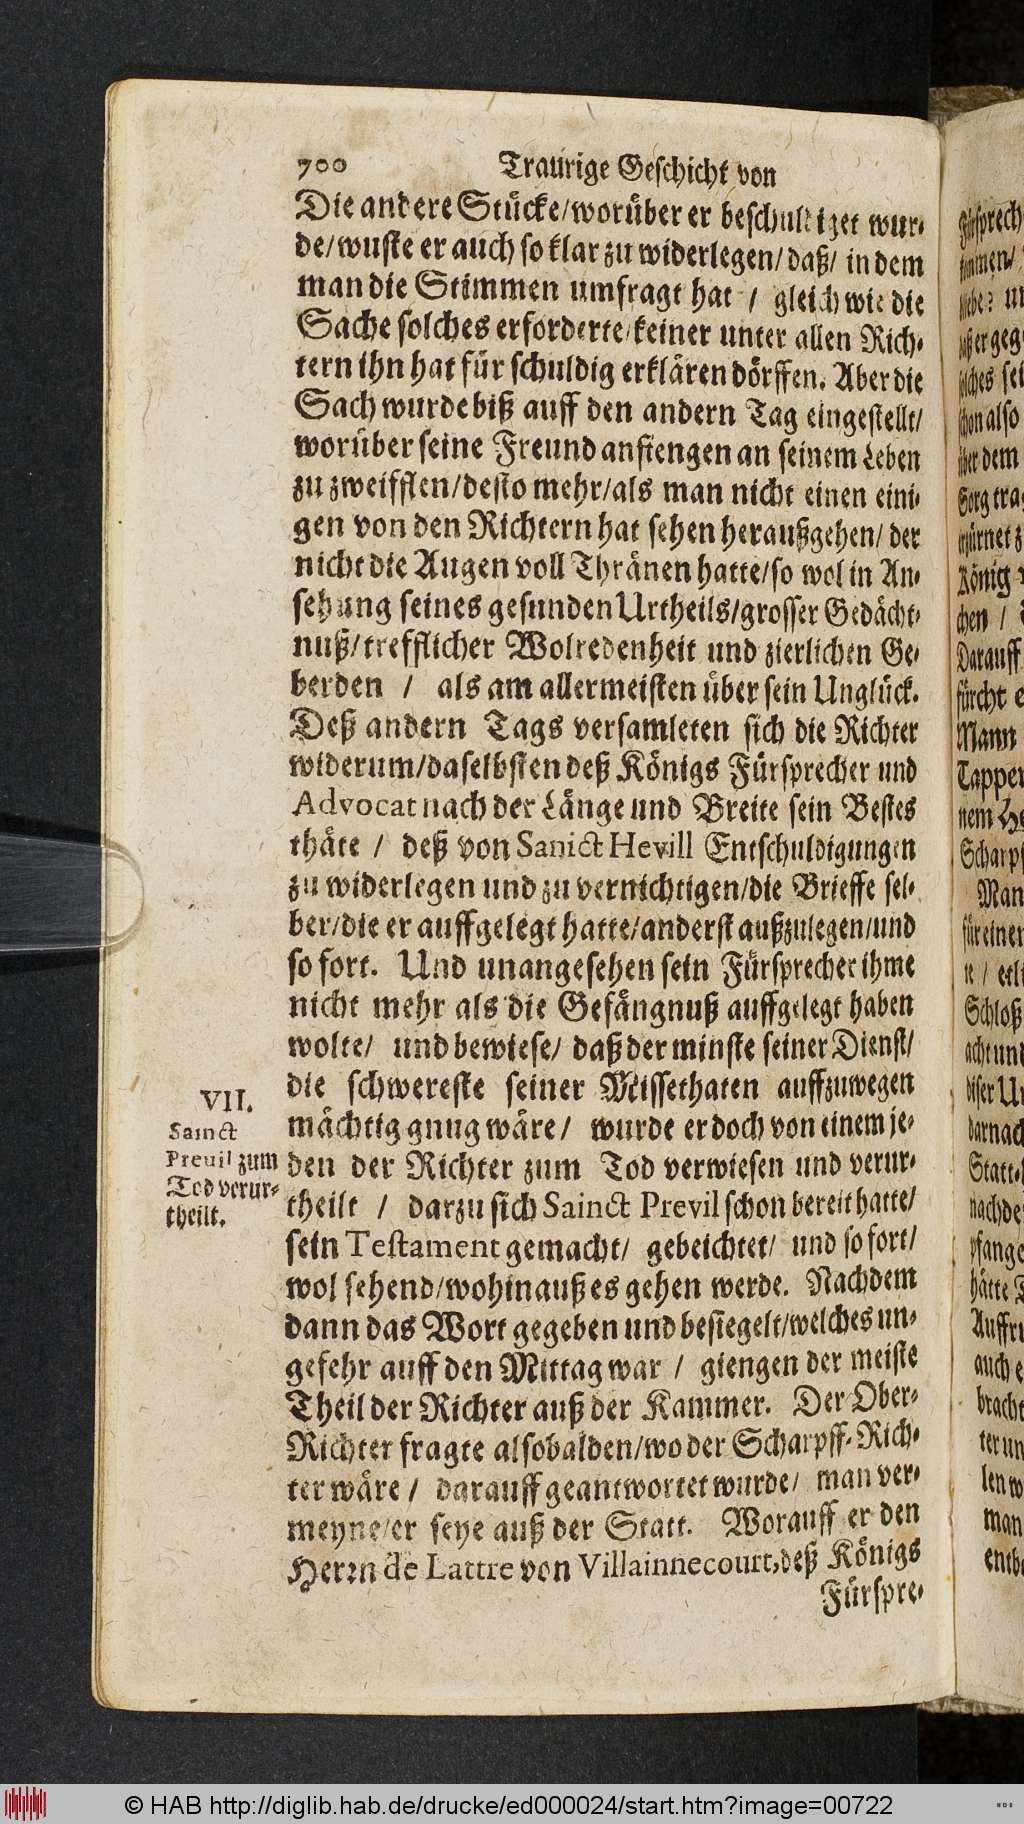 700 Traurige Geschicht von
Die andere Stücke/worüber er beschuldiget wur-
de/wuste er auch so klar zu widerlegen/ daß/ in dem
man die Stimmen umfragt hat / gleich wie die
Sache solches erforderte/keiner unter allen Rich-
tern ihn hat für schuldig erklären dörffen. Aber die
Sach wurde biß auff den andern Tag eingestellt/
worüber seine Freund anfiengen an seinem Leben
zu zweifflen/desto mehr/als man nicht einen eini-
gen von den Richtern hat sehen heraußgehen/ der
nicht die Augen voll Thränen hatte/so wol in An-
sehung seines gesunden Urtheils/grosser Gedächt-
nuß/trefflicher Wolredenheit und zierlichen Ge-
berden / als am allermeisten über sein Unglück.
Deß andern Tags versamleten sich die Richter
widerum/daselbsten deß Königs Fürsprecher und
Advocat nach der Länge und Breite sein Bestes
thäte / deß von Sanict Hevill Entschuldigungen
zu widerlegen und zu vernichtigen/die Brieffe sel-
ber/die er auffgelegt hatte/anderst außzulegen/und
so fort. Und unangesehen sein Fürsprecher ihme
nicht mehr als die Gefängnuß auffgelegt haben
wolte/ und bewiese/ daß der minste seiner Dienst/
die schwereste seiner Missethaten auffzuwegen
mächtig gnug wäre/ wurde er doch von einem je-
den der Richter zum Tod verwiesen und verur-
theilt / darzu sich Sainct Previl schon bereit hatte/
sein Testament gemacht/ gebeichtet/ und so fort/
wol sehend/wohinauß es gehen werde. Nachdem
dann das Wort gegeben und besiegelt/welches un-
gefehr auff den Mittag war / giengen der meiste
Theil der Richter auß der Kammer. Der Ober-
Richter fragte alsobalden/wo der Scharpff-Rich-
ter wäre / darauff geantwortet wurde/ man ver-
meyne/er seye auß der Statt. Worauff er den
Herrn de Lattre von Villainnecourt, deß Königs
Fürspre-
VII.
Sainct
Preuil zum
Tod verur-
theilt.
© HAB http://diglib.hab.de/drucke/ed000024/start.htm?image=00722